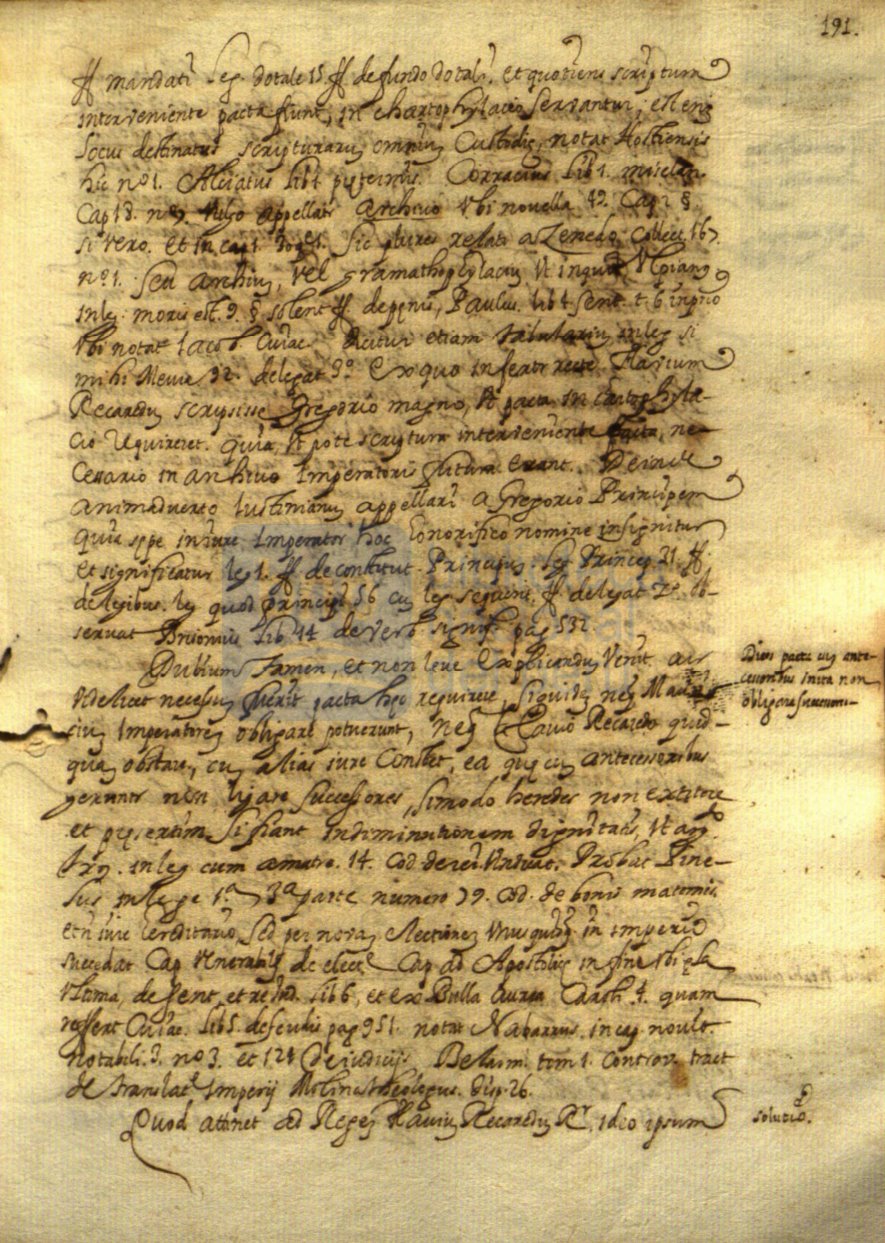 191.
ff mandati Leg. dotale 15 ff de fundo dotali. et quotiens scriptura
interveniente pacta fiunt, in chartophylacio servantur, est enĩ
locus destinatus scripturarũ omniũ Custodie, notat Hostiensis
hic nº 1. Alciatus lib 4 Corracius lib 1. miscelan
Cap 18. nº 9. Vulgo appellatr Archivo Vbi novella 49. Cap 2 §.
si vero. et in cap 1 Sic plures relati a Zenedo, Collect 167
nº 1. seu archiuũ, vel gramathophylaciũ Vt inquit Vlpiang
in leg. moris est. 9. § solent ff de penis, Paulus lib 4 sent. t. 6 in prio
Vbi notat Jacob Cuiac. dicitur etiam tabulariũ in leg si
mihi Mevia 32. delegat 3º Ex quo infertr recte Flavium
Recaredũ scripsisse Gregorio magno, Vt pacta in Cartophyla-
cio requireret. quia, Vt pote scriptura interveniente facta, ne-
cessario in archivo Imperatori erant. Deinde
animadverto Iustinianũ appellari a Gregorio Principem
quia sepe in iure Imperator hoc honorifico nomine insignitur
et significatur leg 1. ff de constitut. Principũ leg Princeps 21. ff.
de legibus. leg quod principi 56 cũ leg sequenti. ff de legat 2º ob-
servat Brisonius lib 14 de verb. signif. pag 532
Dubium tamen, et non leve explicandũ Venit. an
Videlicet necessũ fuerit pacta hec requirere, siquidẽ neq Mau-
riciũ Imperatorẽ obligare potuerunt, neq Flavio Recaredo quid-
quã obstare, cũ alias iure Constet, ea que cũ antecessoribus
geruntr non ligare successores, si modo heredes non extitere
et presertim si fiant in diminutionem dignitatis, Vt arg.to
in leg cum a matre. 14. Cod de rei Vindicat. Probat Pine-
lus in lege 1.ª 3.ª parte numero 79. Cod. de bonis maternis.
etñ iure hereditario, sed per novã electionẽ Vnusquisq in imperio
succedat Cap Venerabilẽ de elect. Cap ad Apostolice in fine
Vltima, de sent. et re iud. lib 6, et ex Bulla aurea Caroli 4. quam
reffert Cuiac. lib 5. de feudis pag 951. notat Nabarrus. in cap novit
notabili. 3. nº 3. et 124 de iudicijs. Belarm. tom 1. Controv. tract
de translat Imperij Molina theologus. disp. 26.
Quod attinet ad Regẽ Flaviũ Recaredũ Rr, ideo ipsum
Dices pacta cũ ante-
cessoribus inita non
obligare successores-
solutio.